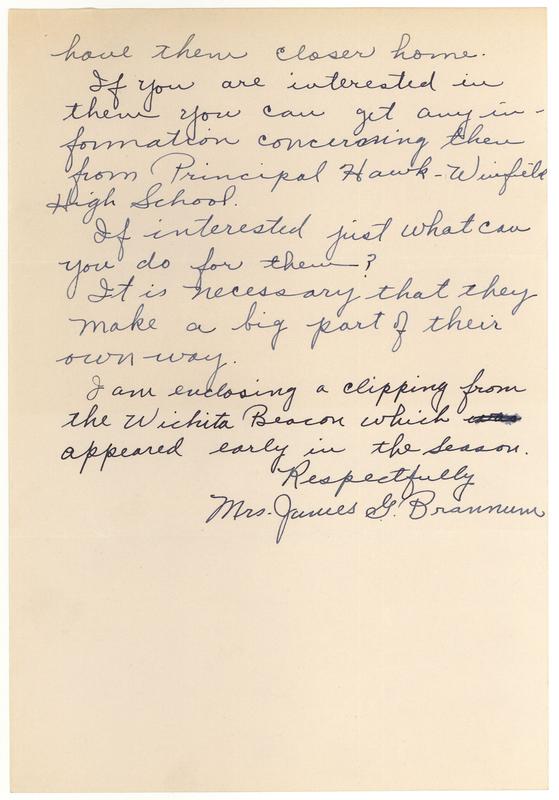 have them closer home.
If you are interested in
them you can get any in-
formation concerning them
from Principal Hawk-Winfield
High School.
If interested just what can
you do for them?
It is necessary that they
make a big part of their
own way.
I am enclosing a clipping from
the Wichita Beacon which
appeared early in the season.
Respectfully
Mrs. James G. Brannum